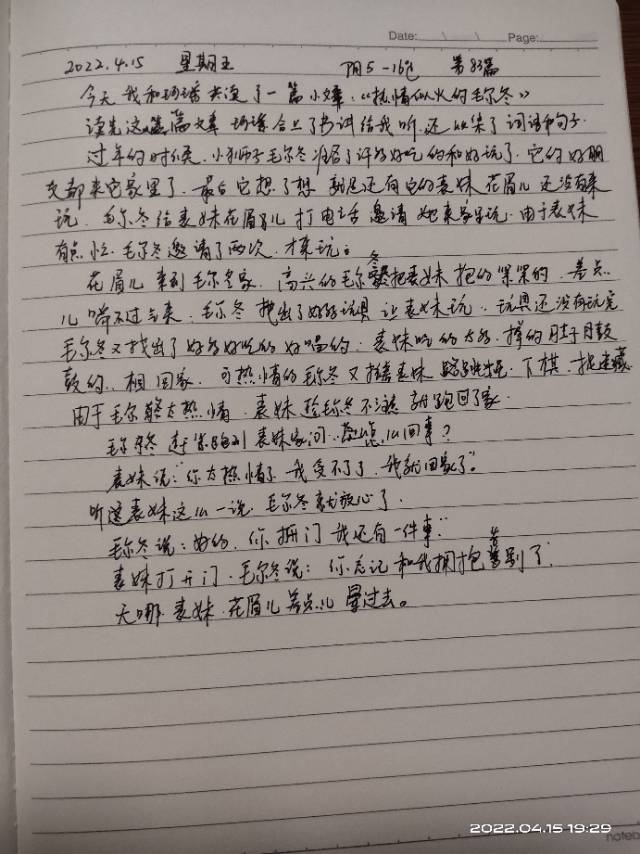 Date: Page:
2022.4.15 星期五 阴5-16℃ 第83篇
今天我和 共读了一篇小文章:《热情似火的毛尔冬》
读完这篇文章 合上了书讲给我听.还 了词语和句子.
过年的时候.小狮子毛尔冬准备了许多好吃的和好玩了.它的好朋
友都来它家里了.最后它想了想 就是还有它的表妹花眉儿还没有来
玩.毛尔冬给表妹花眉儿打电话邀请她来家里玩.由于表妹
有点忙.毛尔冬邀请了两次.才来玩。
花眉儿来到毛尔冬家.高兴的毛尔冬把表妹抱的 的.差点
儿喘不过气来.毛尔冬找出了好多玩具让表妹玩.玩具还没有玩完
毛尔冬又找出了好多好吃的好喝的.表妹吃的太多.撑的肚子鼓
鼓的..想回家.可热情的毛尔冬又拉着表妹 下棋.捉迷藏
由于毛尔冬太热情.表妹趁毛尔冬不注意就跑回了家.
毛尔冬追 跑到表妹家问. 怎么回事?
表妹说:“你太热情了我受不了了.我就回家了”.
听这表妹这么一说.毛尔冬就放心了.
毛尔冬说:好的.你 门我还有一件事“
表妹打开门.毛尔冬说:你忘记和我拥抱告别了”
天哪 表妹.花眉儿差点儿晕过去。
2022.04.15 19:29
noteb